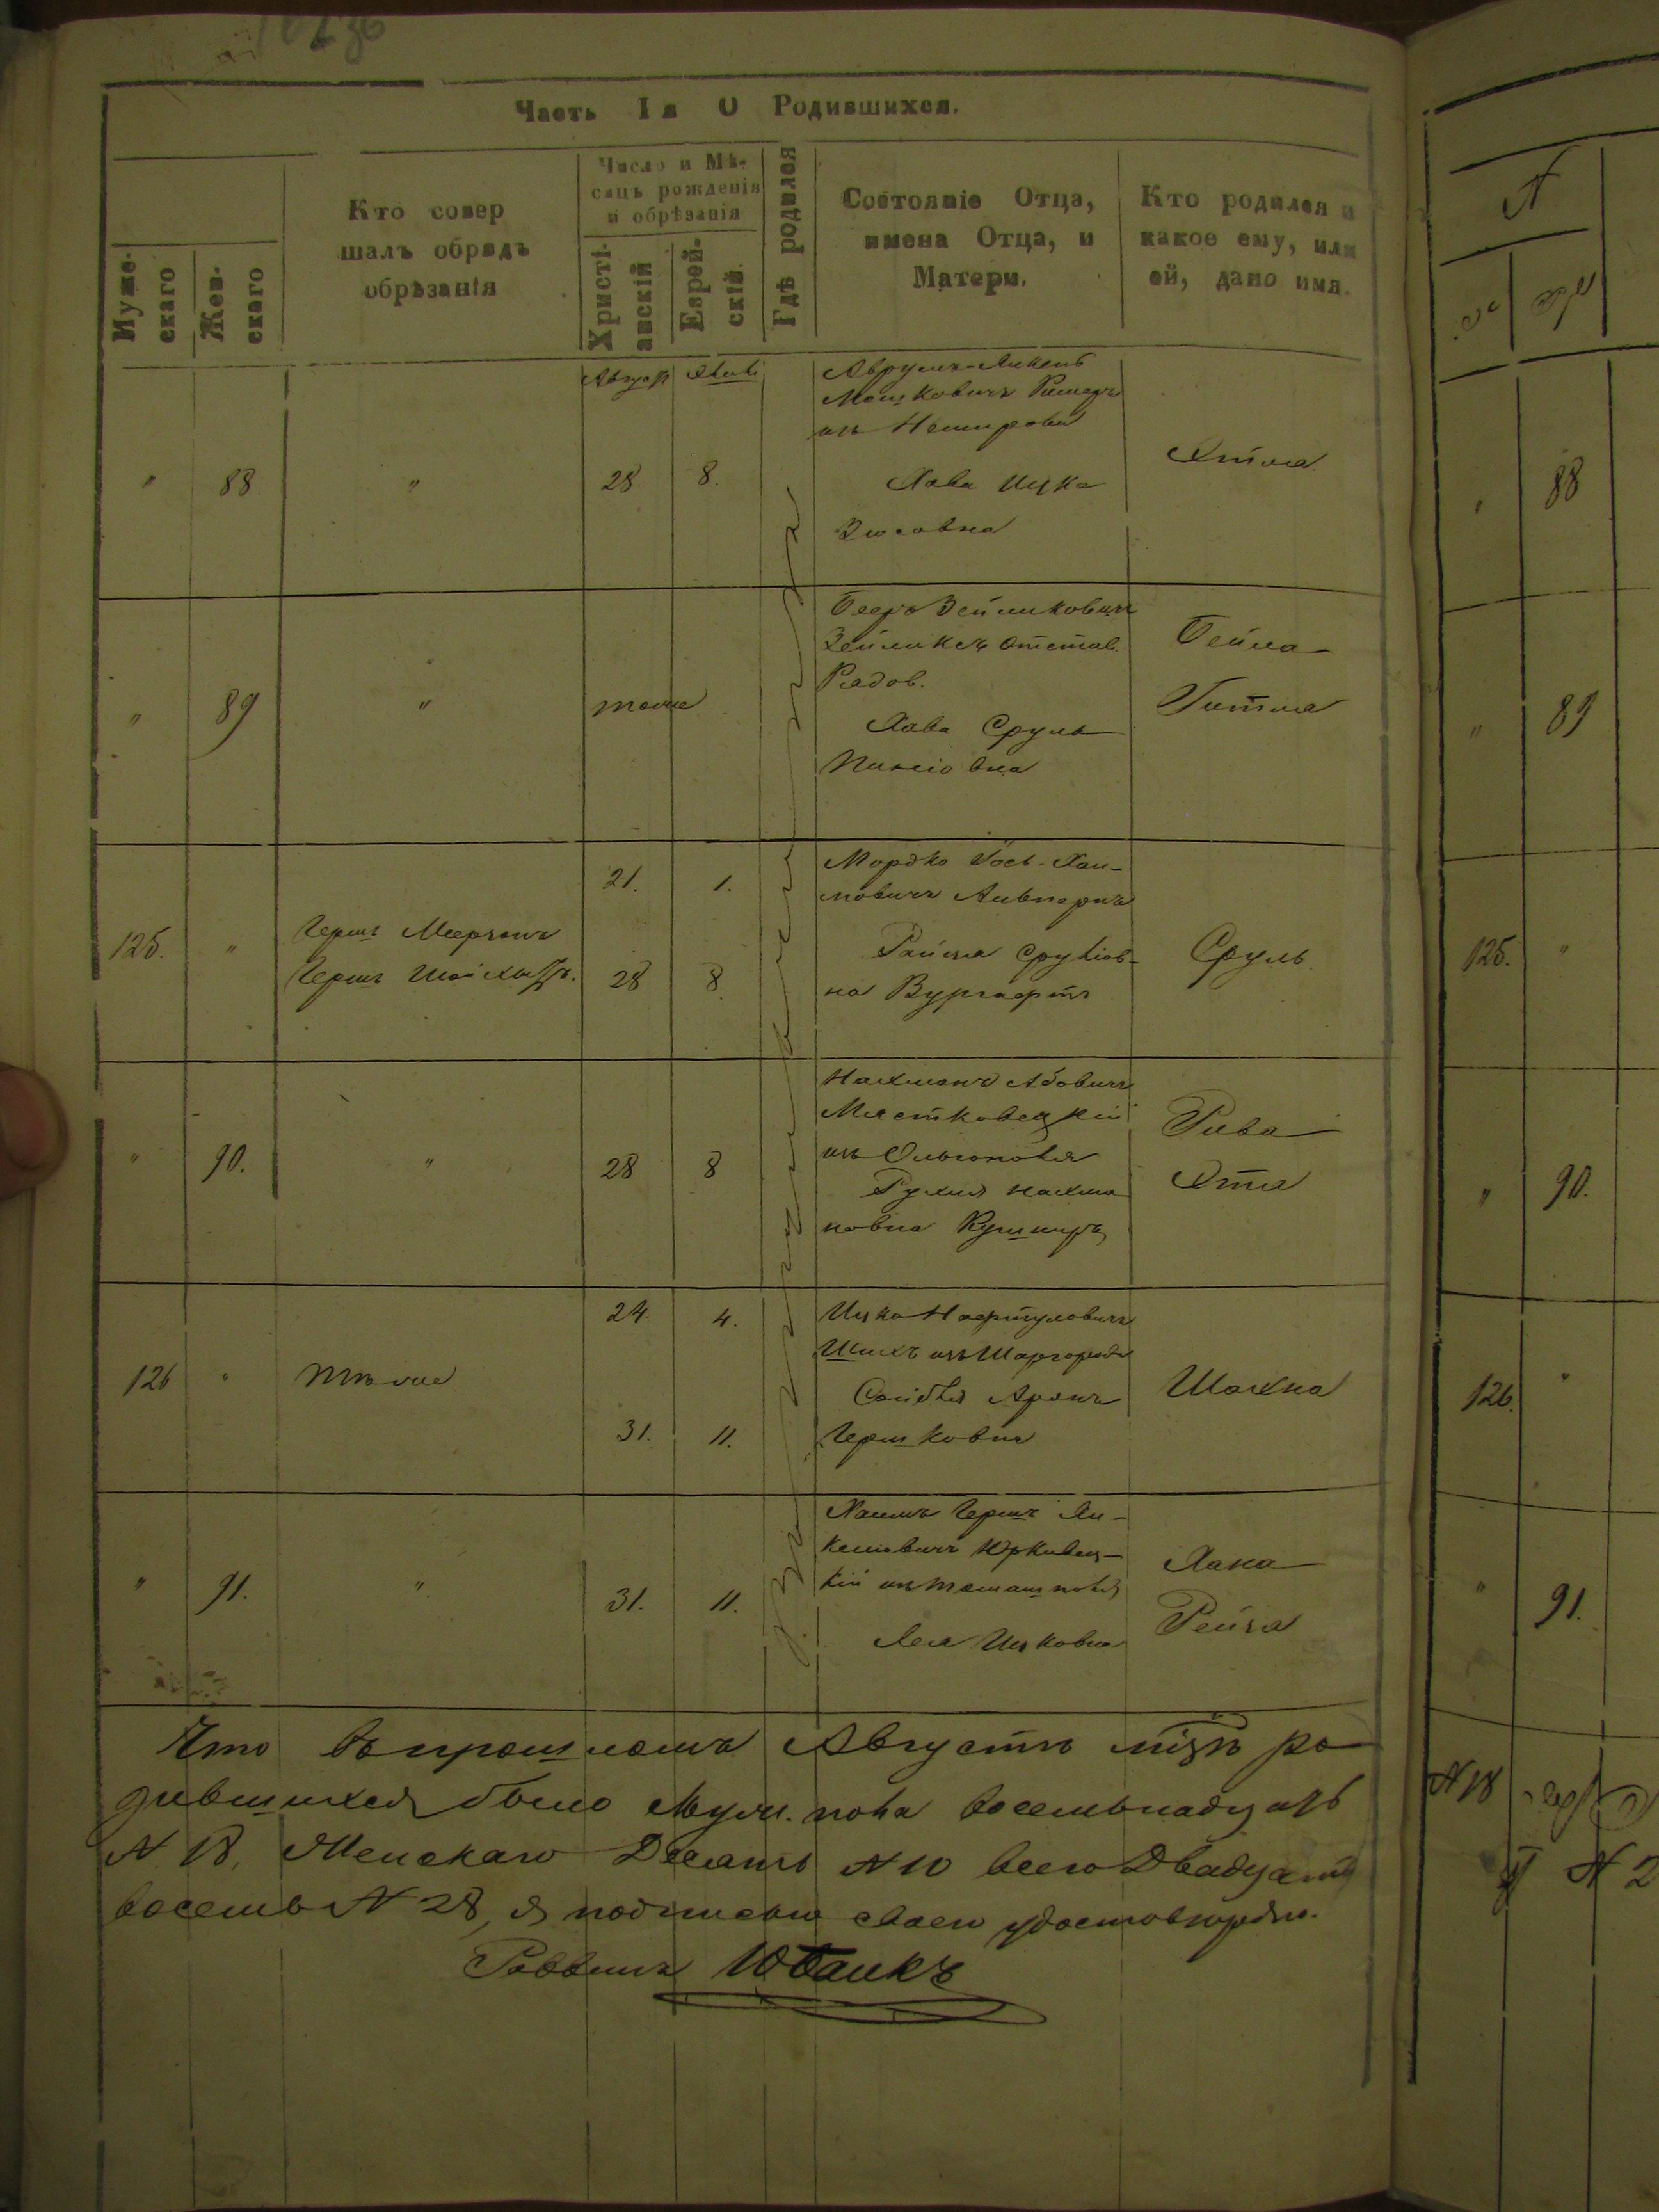 Часть Iя О Родившихся.
Муже-
скаго
Жен-
скаго
Кто совер
шалъ обрядъ
обрѣзанія
Число и Мѣ-
сяцъ рожденія
и обрѣзанія
Христі-
анскій
Еврей-
скій
Гдѣ родился
Состояніе Отца,
имена Отца, и
Матери.
Кто родился и
какое ему, или
ей, дано имя.
Август
" 88 " 28 8.
Аврумъ-Янкель
Мошковичъ
изъ Немирова
Хава Ицко
Зюсовна
" 89 " тоже
Беръ Зейликовичъ
Зейликъ отстав.
Рядов.
Хава Сруль
Пинсiовна
Бейла
Гитля
125. "
Герш Меерзонъ
Гершъ
21. 1.
28 8.
Мордко Іось-Хаи-
мовичъ Альперинъ
Ройзя Срулiов-
на Вургафтъ
Сруль
" 90. " 28 8
Нахманъ Абовичъ
Мястковецкій
изъ Ольгополя
Рухля Нахма
новна Кушниръ
Рива
Этя
126 " тѣже
24. 4.
31. 11.
Ицко Нафтуловичъ
изъ Шаргорода
Аронъ
Гершковна
Шахна
" 91. " 31. 11.
Хаимъ Гершъ Ян-
келiовичъ Юрковец-
кій изъ Томашполя
Лея Ицковна
Хана
Рейзя
Что въ прошломъ Августѣ мцѣ ро
дившихся было Муж. пола восемьнадцать
N 18, Женскаго Десять N 10 всего Двадцать
восемь N 28, я подписью своею удостовѣряю.
Раввинъ Ю Банкъ
N
" 88
" 89
125. "
" 90.
126. "
" 91.
N 18
N 2